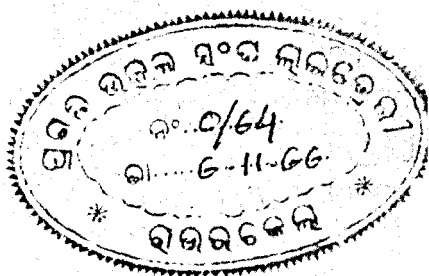 ଉତ୍କଳ ସଂଘ ଲାଇବ୍ରେରୀ
ନଂ..0/64.
ତା.....6-11-66.
ରାଉରକେଲା